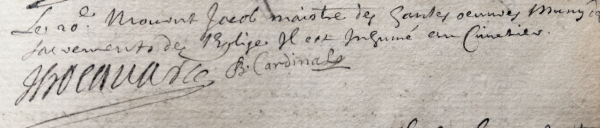 Le 20e. Mourut Jacob maistre des hautes oeuvres muny des
sacrements de l'Eglise Il est Inhumé au Cimetier.
B. Cardinal